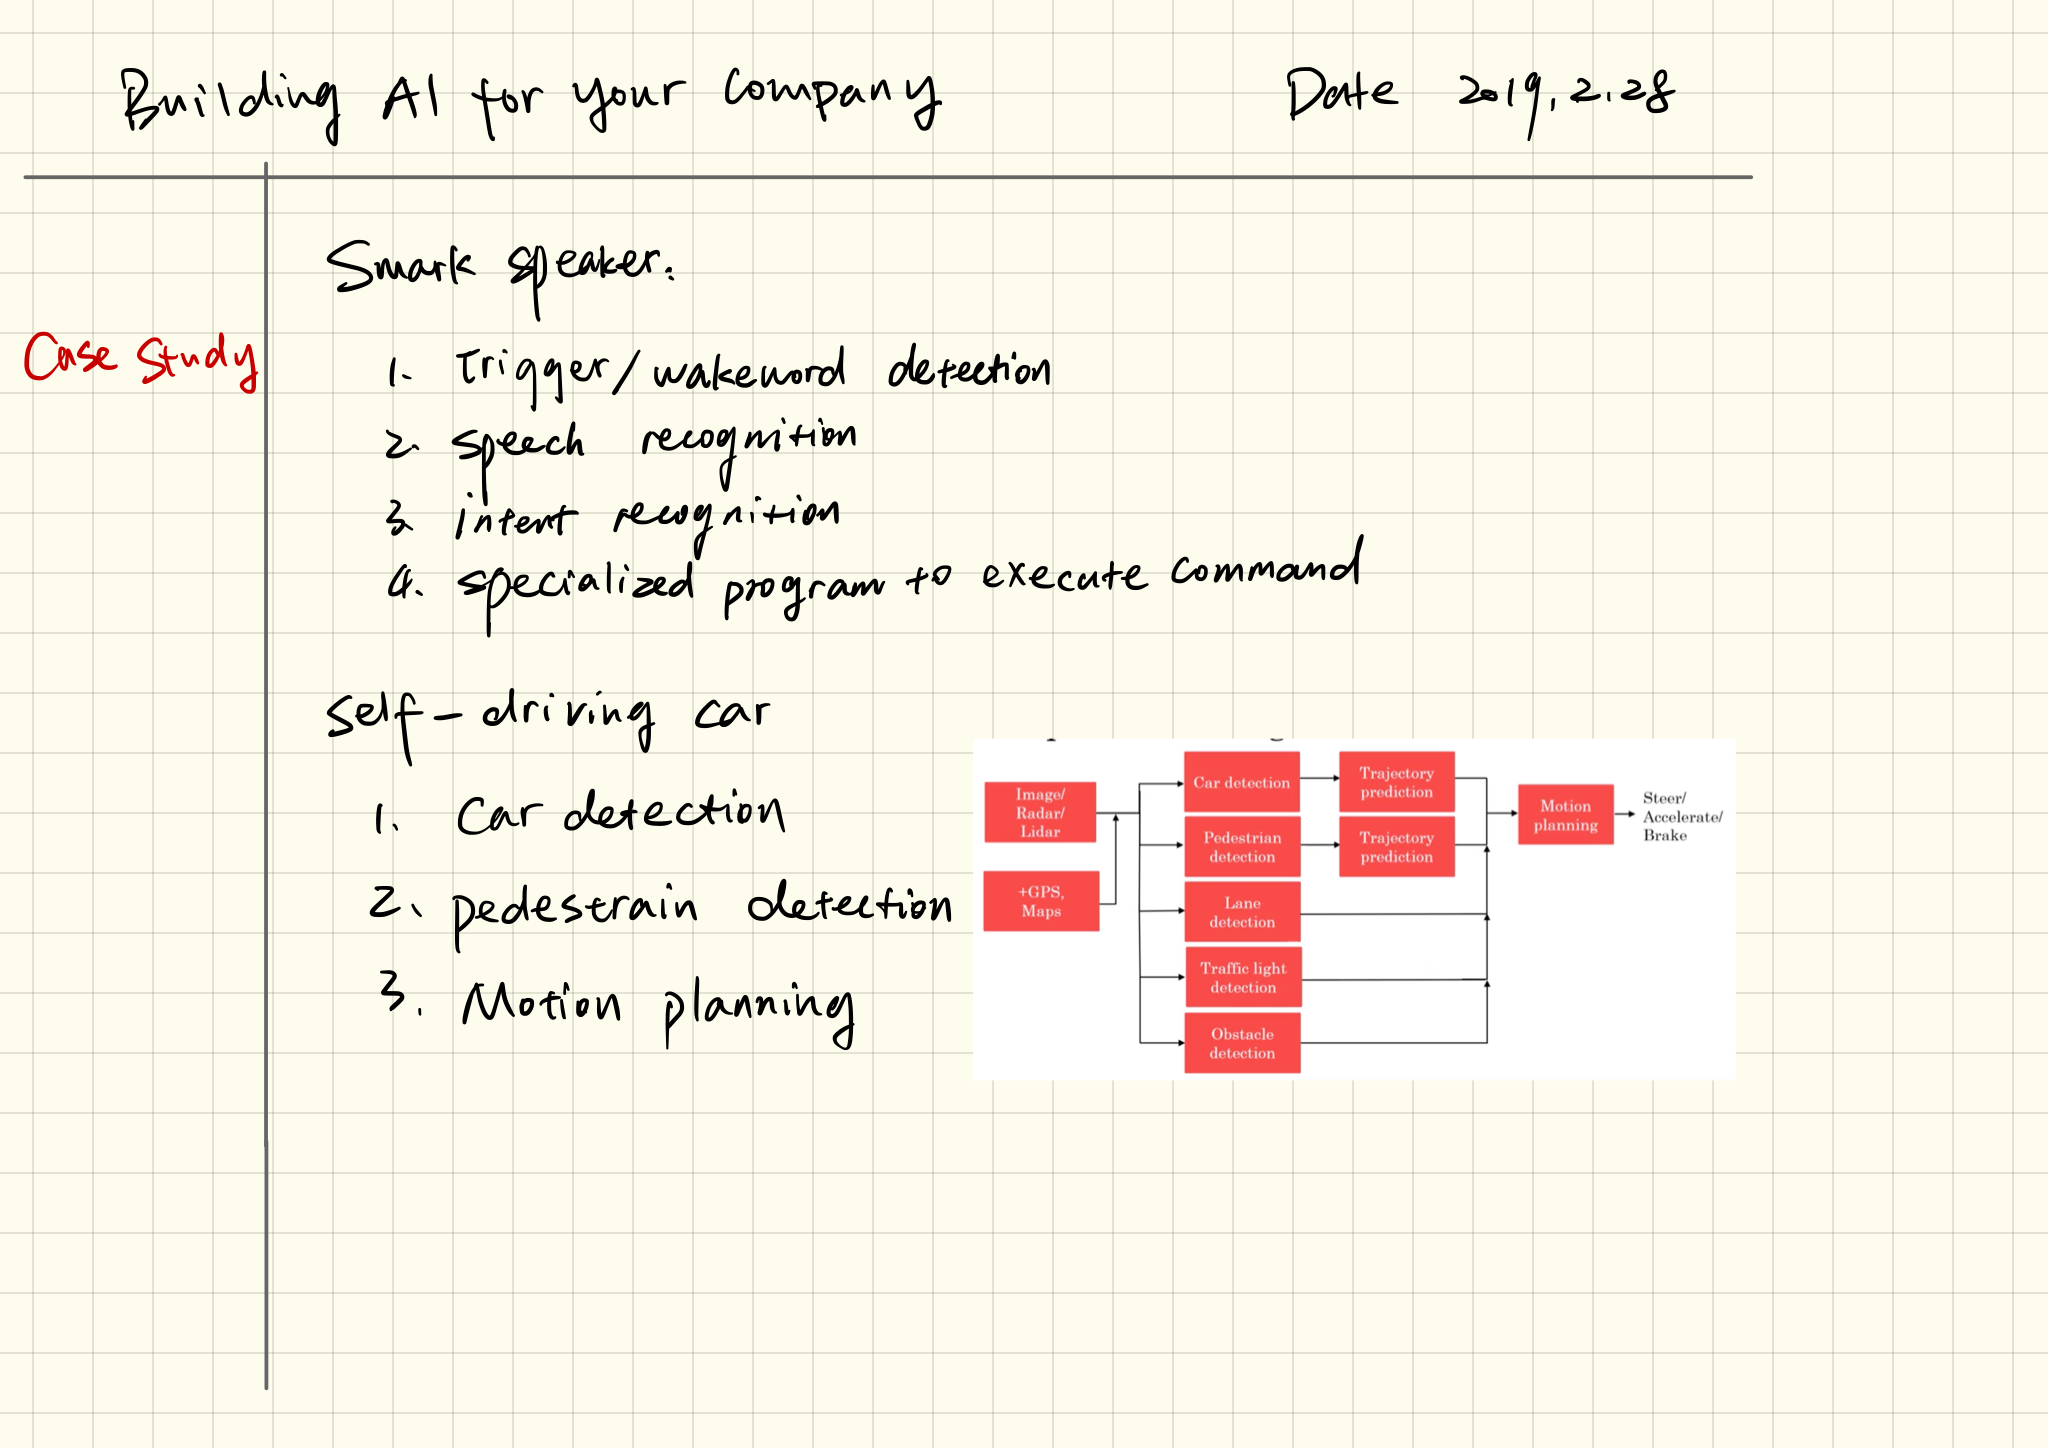 Building AI for your Company
Date 2019.2.28
Case Study
Smark speaker:
1. Trigger/wakeword detection
2. speech recognition
3. intent recognition
4. specialized program to execute command
self-driving car
1. Car detection
2. pedestrain detection
3. Motion planning
Image/
Radar/
Lidar
+GPS,
Maps
Car detection
Pedestrian
detection
Lane
detection
Traffic light
detection
Obstacle
detection
Trajectory
prediction
Trajectory
prediction
Motion
planning
Steer/
Accelerate/
Brake